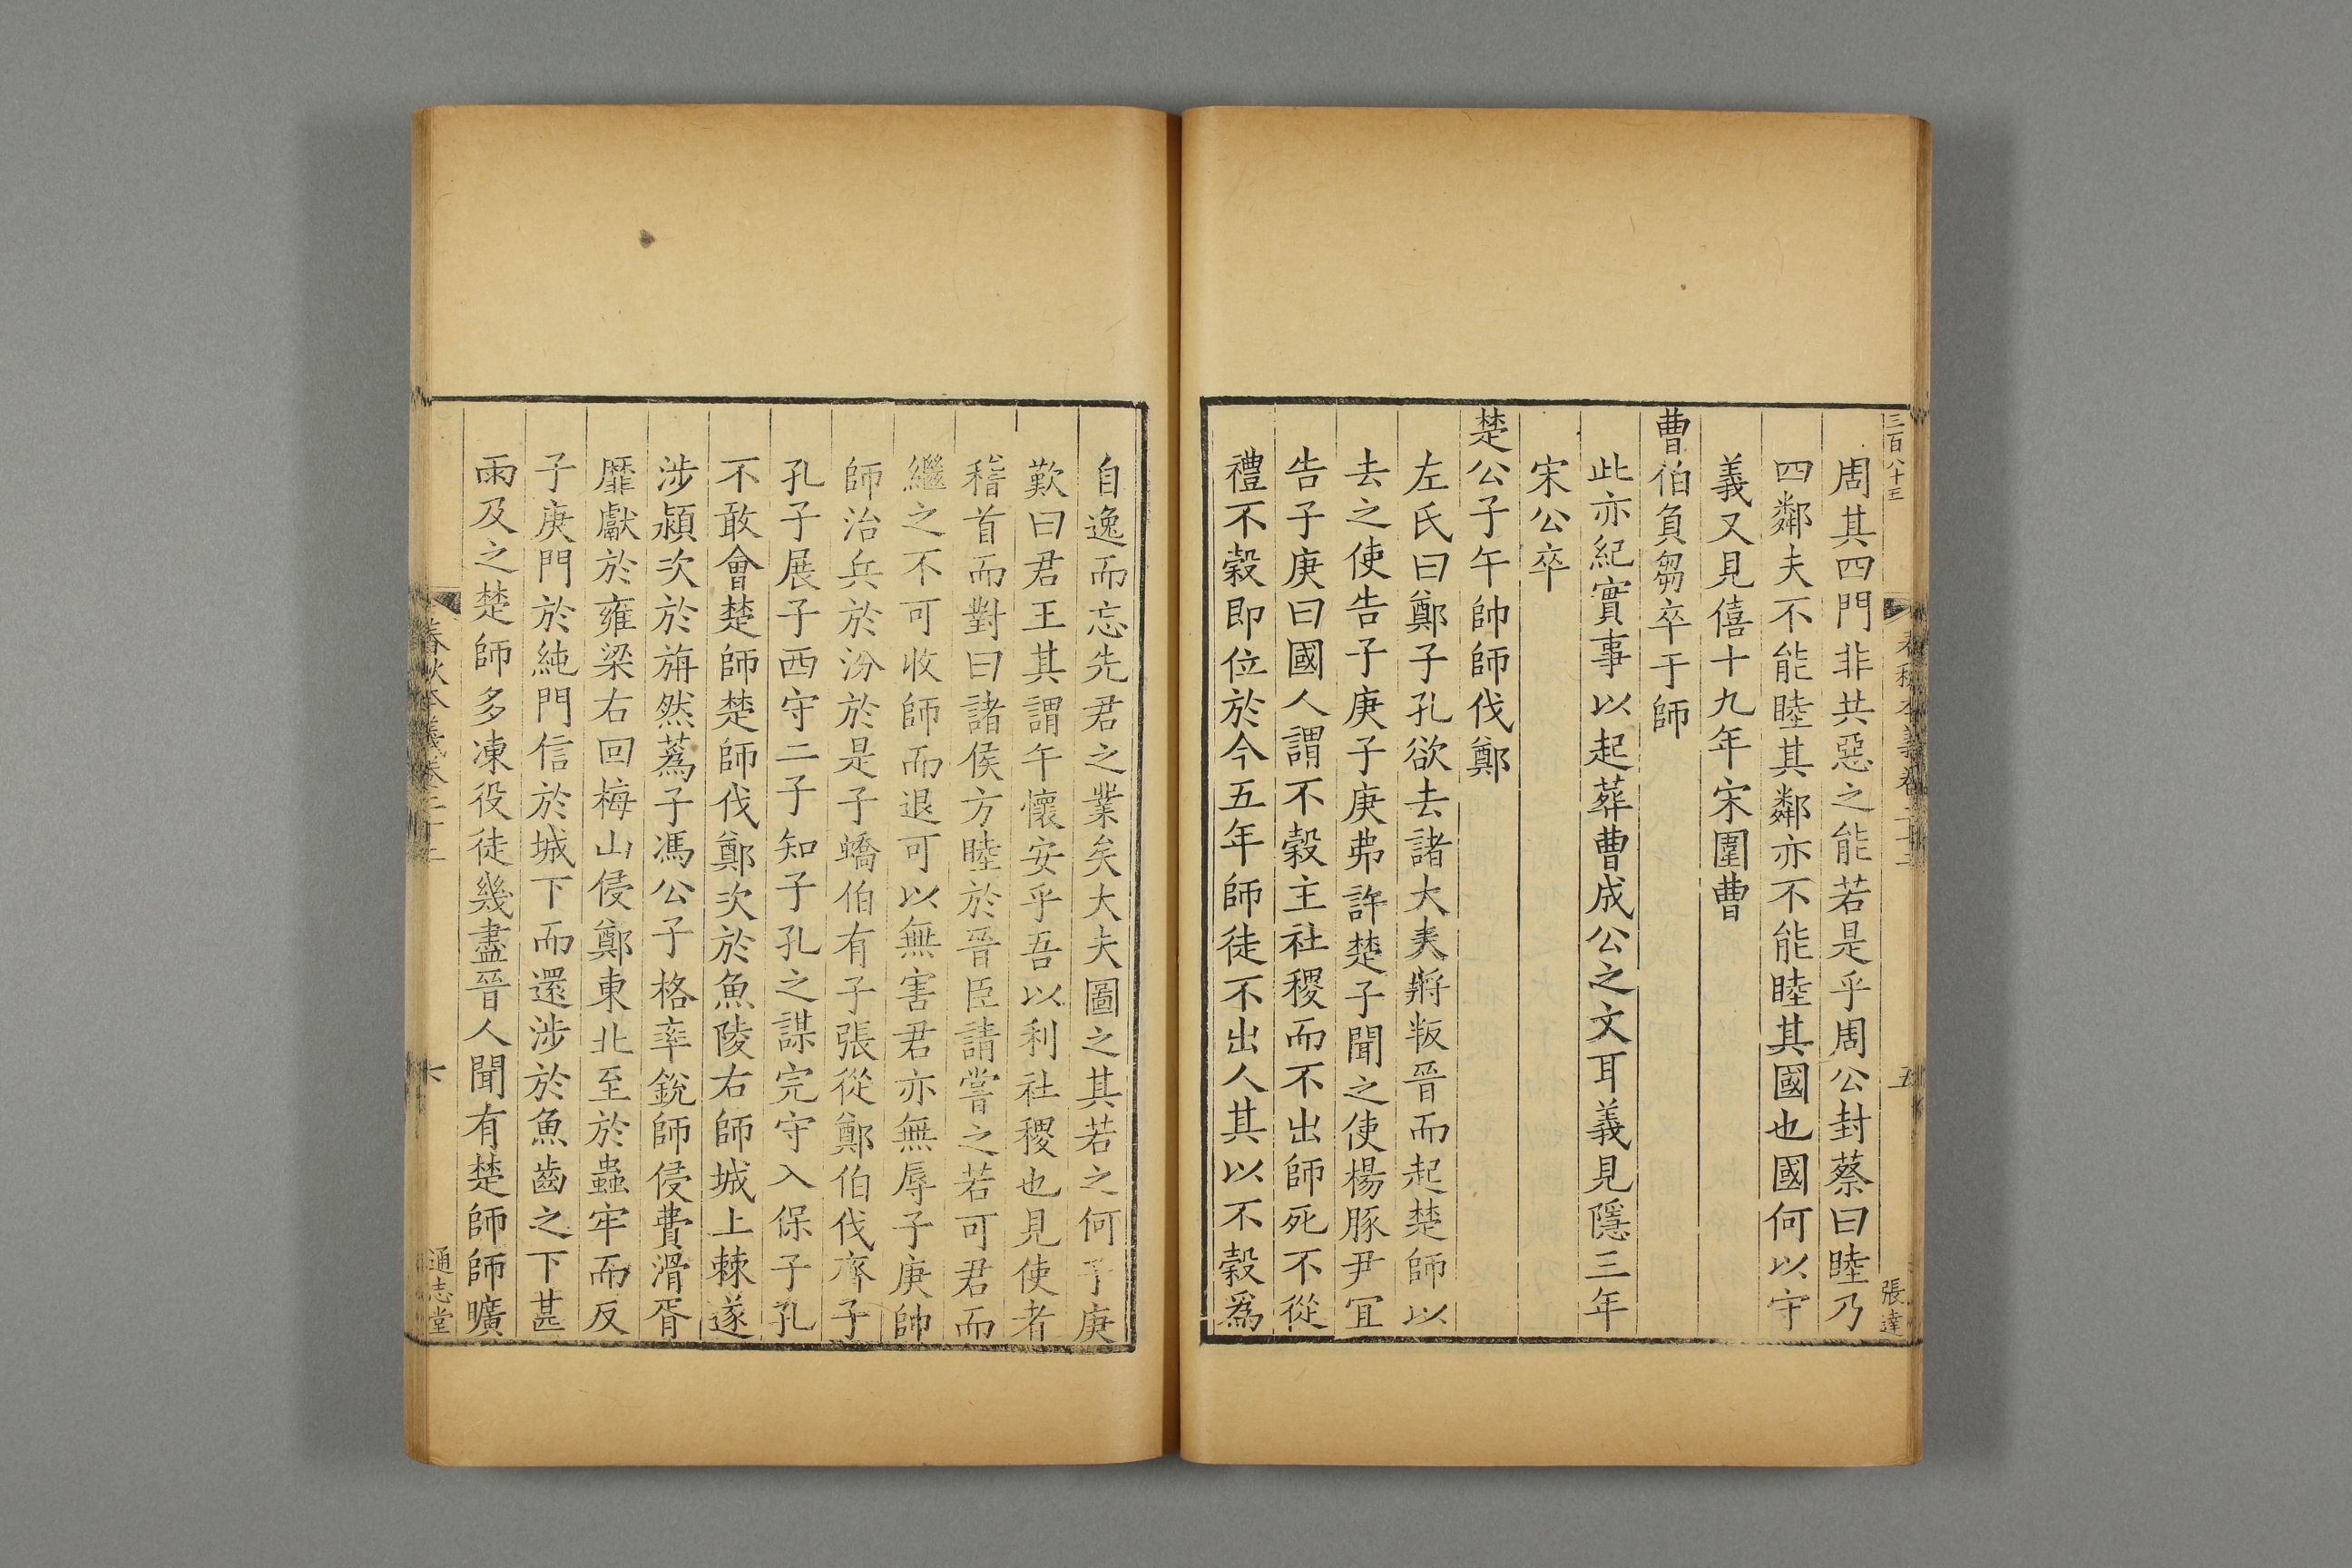 三百八十三
春秋本義卷二十二
五
張達
周其四門非共惡之能若是乎周公封蔡曰睦乃
四鄰夫不能睦其鄰亦不能睦其國也國何以守
義又見僖十九年宋圍曹
曹伯負芻卒于師
此亦紀實事以起葬曹成公之文耳義見隱三年
宋公卒
楚公子午帥師伐鄭
左氏曰鄭子孔欲去諸大夫將叛晉而起楚師以
去之使告子庚子庚弗許楚子聞之使楊豚尹宜
告子庚曰國人謂不穀主社稷而不出師死不從
禮不穀即位於今五年師徒不出人其以不穀爲
自逸而忘先君之業矣大夫圖之其若之何子庚
歎曰君王其謂午懷安乎吾以利社稷也見使者
稽首而對曰諸侯方睦於晉臣請嘗之若可君而
繼之不可收師而退可以無害君亦無辱子庚帥
師治兵於汾於是子蟜伯有子張從鄭伯伐齊子
孔子展子西守二子知子孔之謀完守入保子孔
不敢會楚師楚師伐鄭次於魚陵右師城上棘遂
涉潁次於旃然蒍子馮公子格率銳師侵費滑胥
靡獻於雍梁右回梅山侵鄭東北至於蟲牢而反
子庚門於純門信於城下而還涉於魚齒之下甚
雨及之楚師多凍役徒幾盡晉人聞有楚師師曠
春秋本義卷二十二
六
通志堂